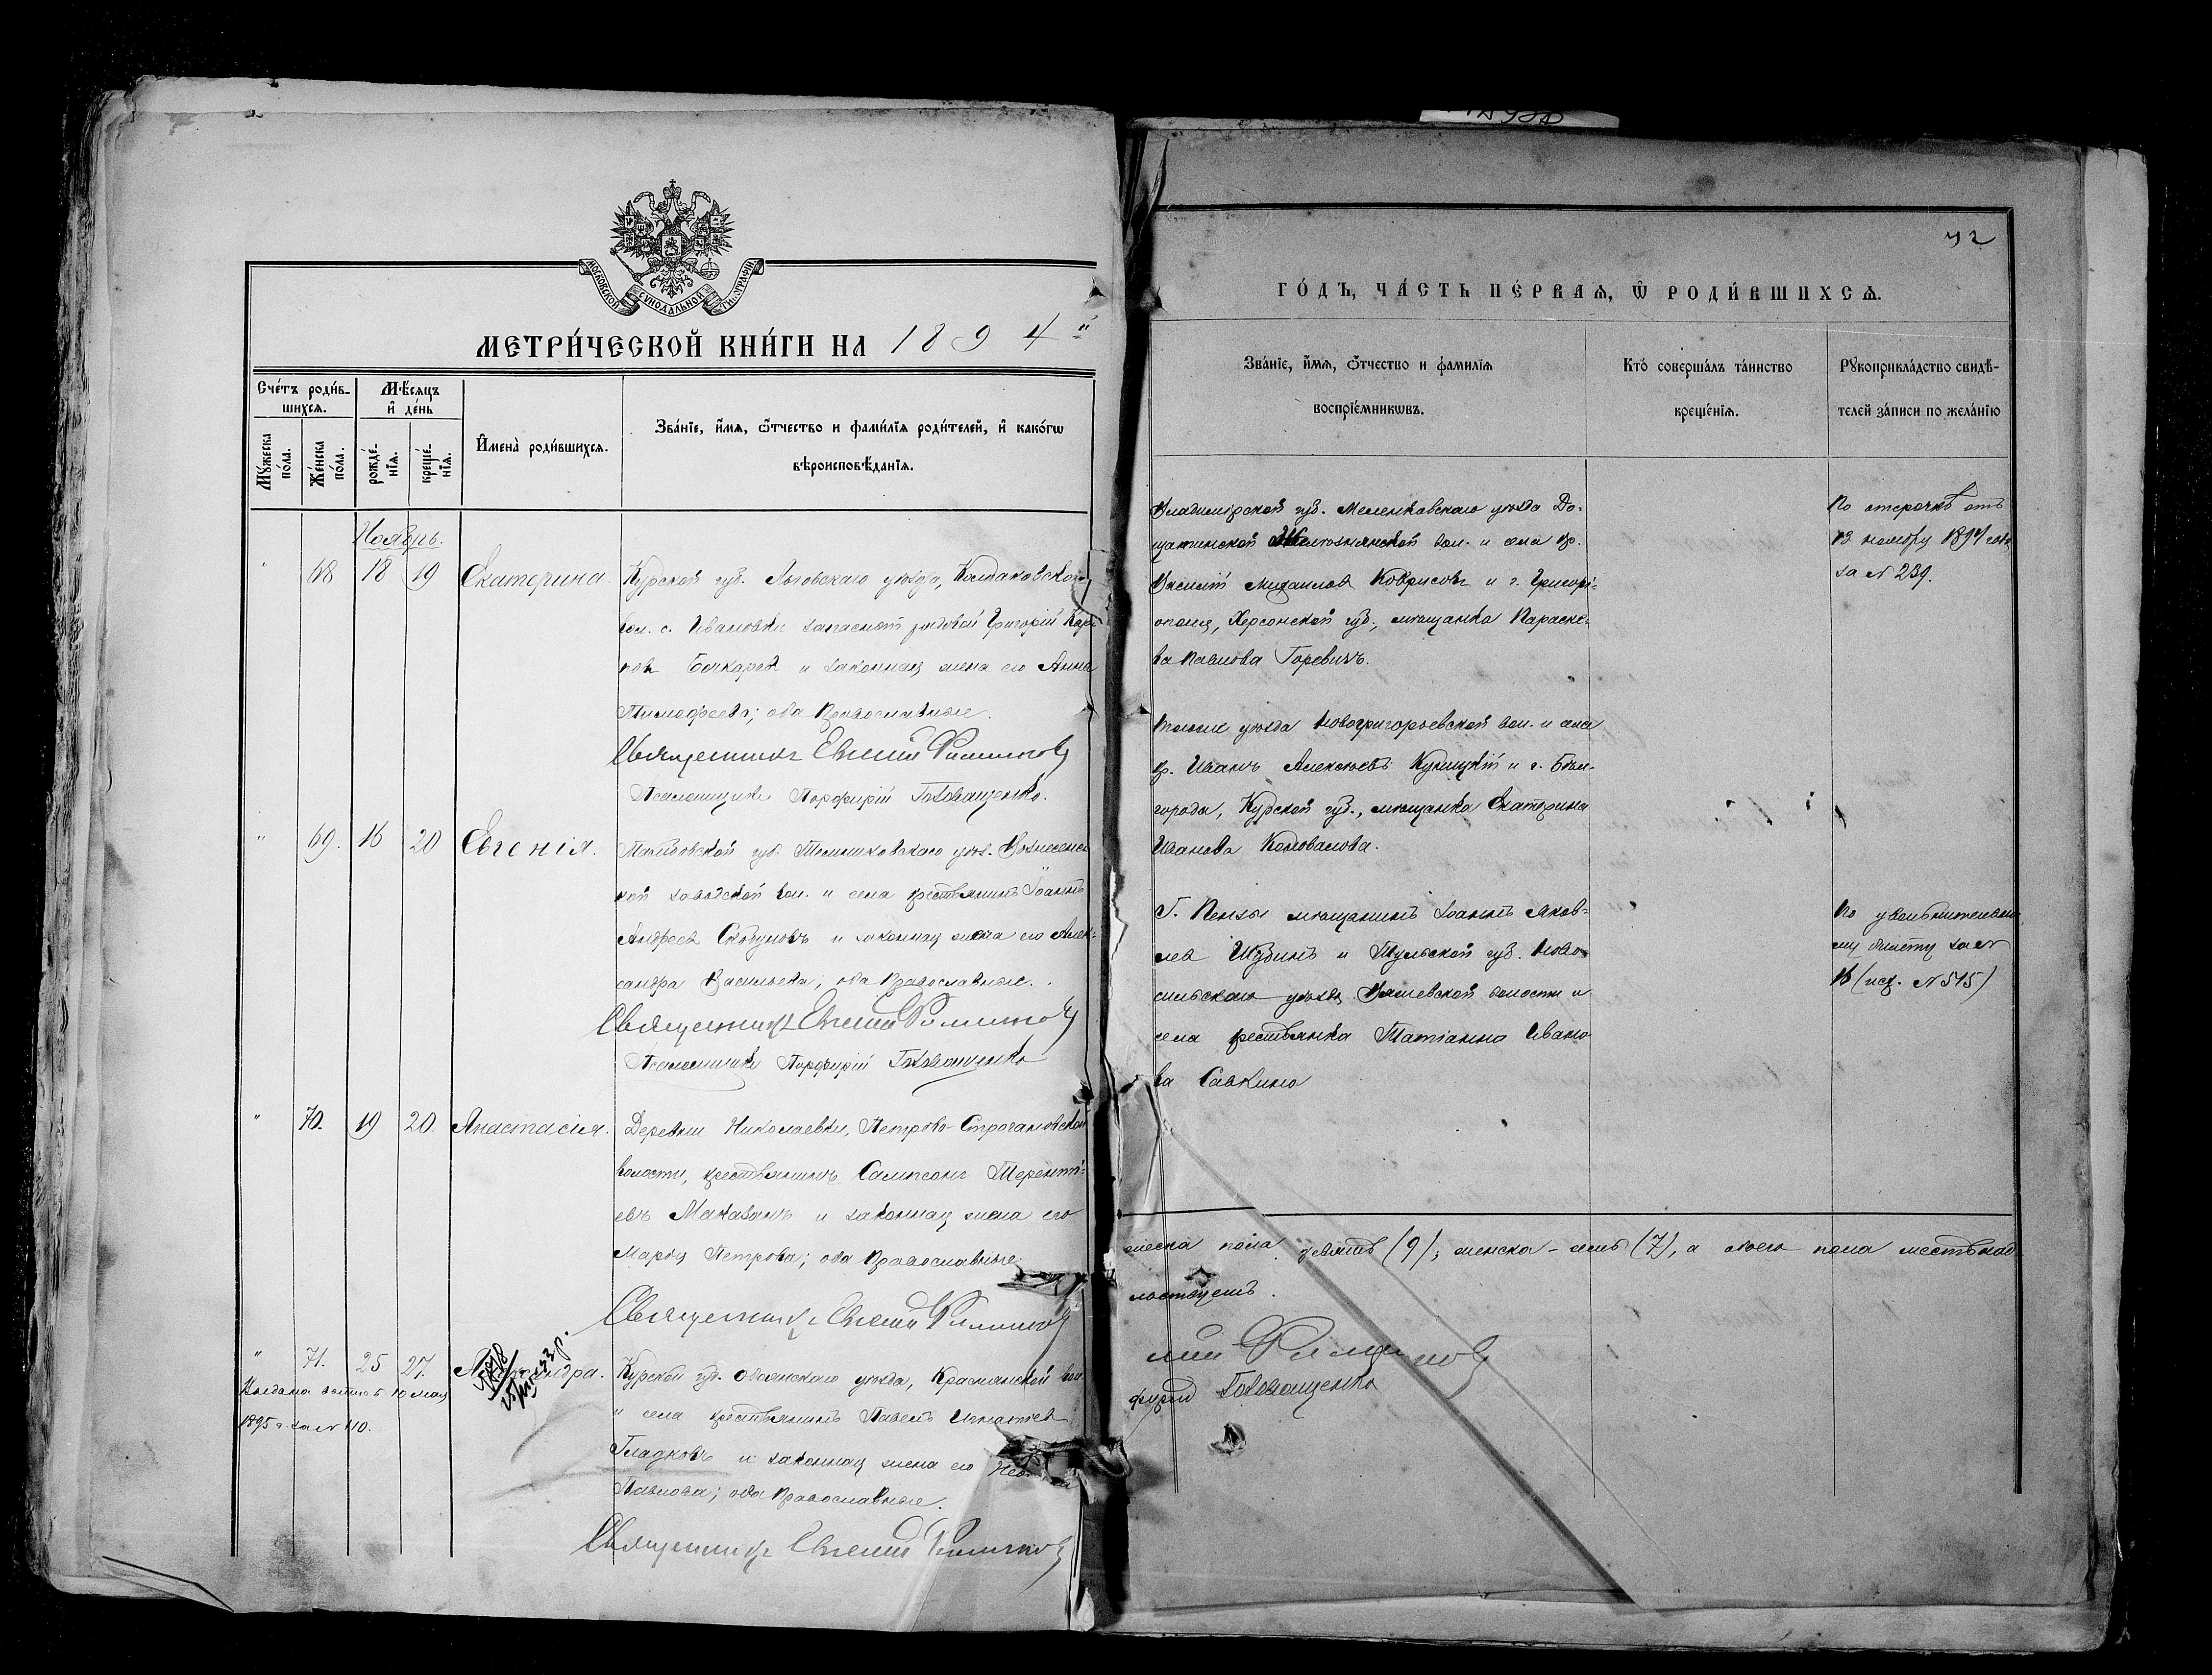 МОСКОВСКОЙ СѴНОДАЛЬНОЙ ТИПОГРАФІИ
МЕТРИ́ЧЕСКОЙ КНИ́ГИ НА 1894й
Сче́тъ роди́в-
шихсѧ.
Мꙋжеска
по́ла.
Же́нска
по́ла.
Мѣ́сѧцъ
и҆ де́нь
рожде́-
нїѧ.
креще́-
нїѧ.
И҆мена̀ роди́вшихсѧ.
Зва́нїе, и҆́мѧ, ѻ҆́тчество и фами́лїѧ роди́телей, и҆ како́гѡ
вѣроисповѣ́данїѧ.
Ноябрь.
" 68 18 19 Екатерина.
Курской губ. Льговскаго уѣзда,
вол. с. Ивановки запасной рядовой Григорій
Бочкаровъ и законная жена его Анна
Тимофеева; оба православные.
Священникъ Евгеній Филипповъ
Псаломщикъ Порфирій Головащенко.
" 69. 16 20 Евгенія.
Тамбовской губ. Темниковскаго уѣз. Вознесенс
кой заводской вол. и села крестьянинъ Іоаннъ
Андреевъ и законная жена его Алек-
сандра Васильева; оба православные.
Священникъ Евгеній Филипповъ
Псаломщикъ Порфирій Головащенко
" 70. 19 20. Анастасія.
Деревни Николаевки, Петрово-Строгановской
волости, крестьянинъ Сампсонъ Терентi-
евъ и законная жена его
Марѳа Петрова; оба православные.
Священникъ Евгеній Филипповъ
" 71. 25 27.
Выдана выпись 10 мая
1895 г. за № 110.
Курской губ. Обоянскаго уѣзда, Краснянской вол.
" села крестьянинъ Павелъ Игнатьевъ
Гладковъ и законная жена его
Павлова; оба православные.
Священникъ Евгеній Филипповъ
42
ГО́ДЪ, ЧА́СТЬ ПЕ́РВАѦ, Ѽ РОДИ́ВШИХСѦ.
Зва́нїе, и҆́мѧ, ѻ҆́тчество и фамилїѧ
воспрїе́мникѡвъ.
Кто́ соверша́лъ та́инство
креще́нїѧ.
Рꙋкоприкла́дство свидѣ́-
телей за́писи по жела́нїю
Владимірской губ. Меленковскаго уѣзда До-
щатинской вол. и села кр.
Василій Михаиловъ и г. Григорі-
ополя, Херсонской губ., мѣщанка Параске-
ва Павлова Горевичъ.
По отсрочкѣ отъ
ноября 1894 года
за № 239.
уѣзда Новогригорьевской вол. и села
кр. Иванъ Алексѣевъ и г. Бѣл-
города, Курской губ., мѣщанка Екатерина
Иванова Коновалова.
Г. Пензы мѣщанинъ Іоаннъ Яков-
левъ Шубинъ и Тульской губ. Ново-
сильскаго уѣзда волости и
села крестьянка Татіанна Ивано-
ва Савкина
По увольнительно-
му билету за №
16 (исх. № 515)
жеска пола девять (9); женска - семь (7), а обоего пола шестьнад
Филипповъ
фирій Головащенко